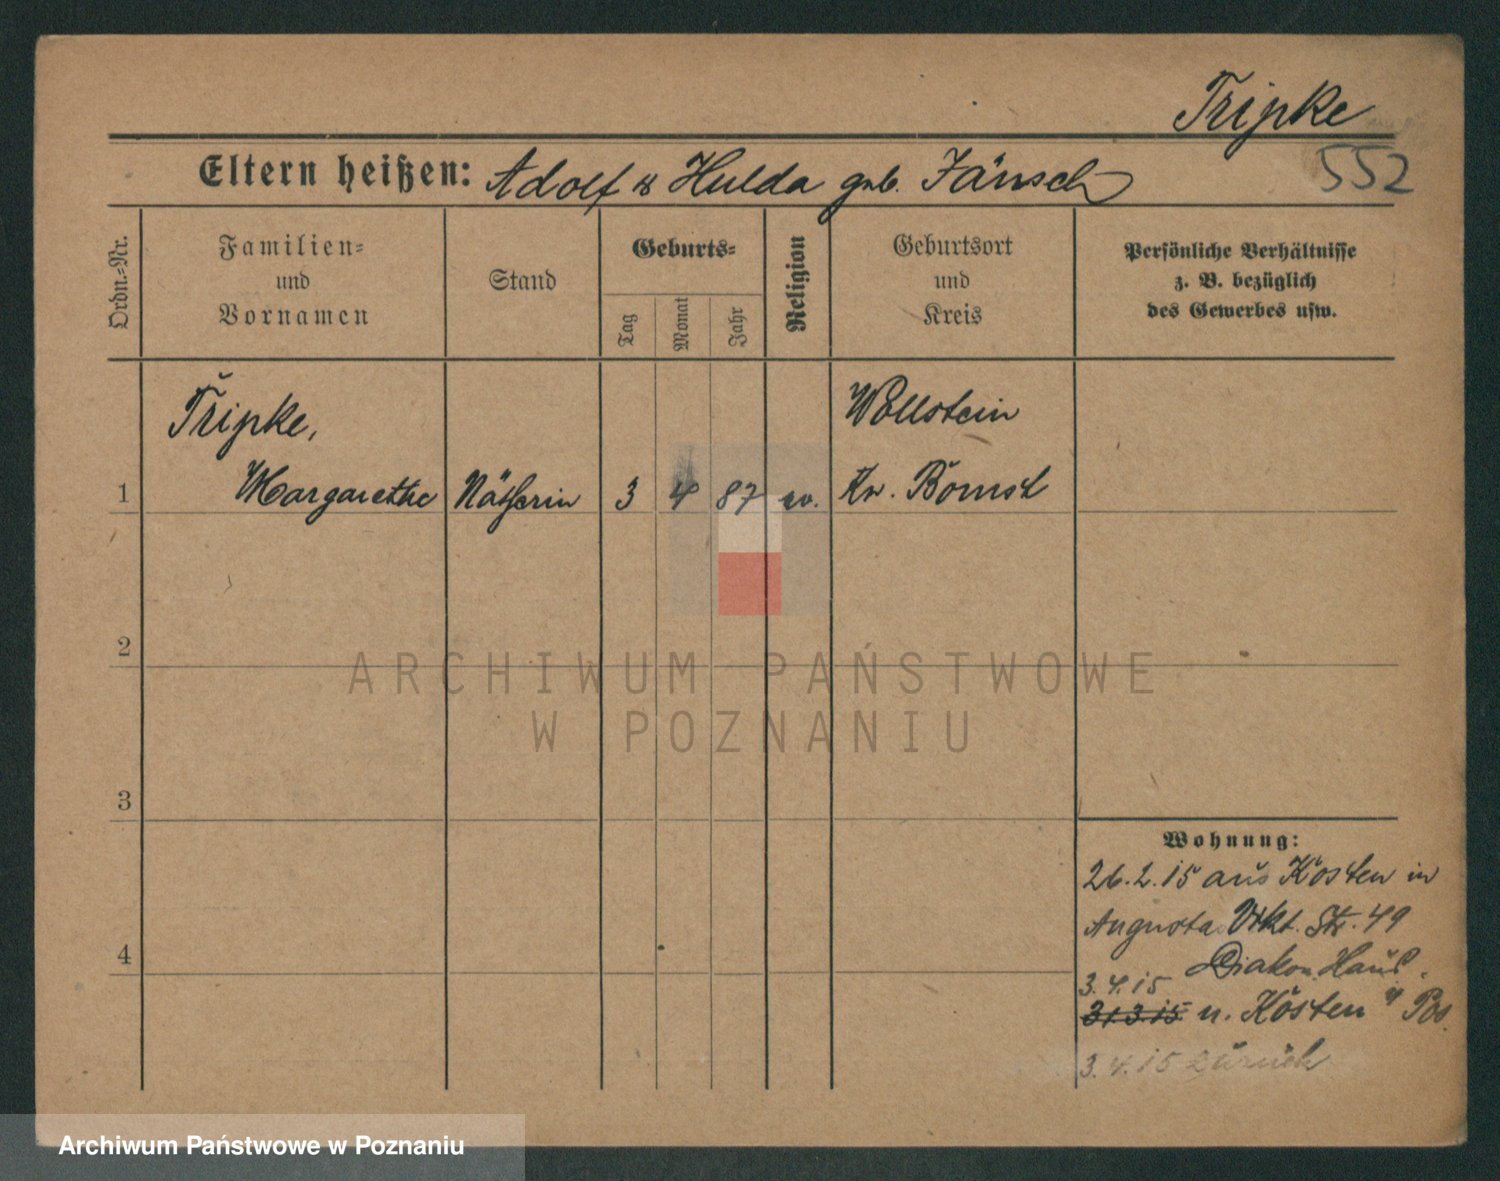 Tripke
552
Eltern heißen: Adolf & Hulda geb. Jänsch
Ordn.-Nr.
Familien-
und
Vornamen
Stand
Geburts-
Tag
Monat
Jahr
Religion
Geburtsort
und
Kreis
Persönliche Verhältnisse
z. B. bezüglich
des Gewerbes usw.
Tripke,
Wollstein
1 Margarethe Nätherin 3 4 87 ev. Kr. Bomst
2
ARCHIWUM PAŃSTWOWE
W POZNANIU
3
Wohnung:
26.2.15 aus Kosten in
Augusta Vikt. Str. 49
4
Diakon. Haus.
3.4.15
31.3.15 n. Kosten Pos.
3.4.15 zurück
Archiwum Państwowe w Poznaniu